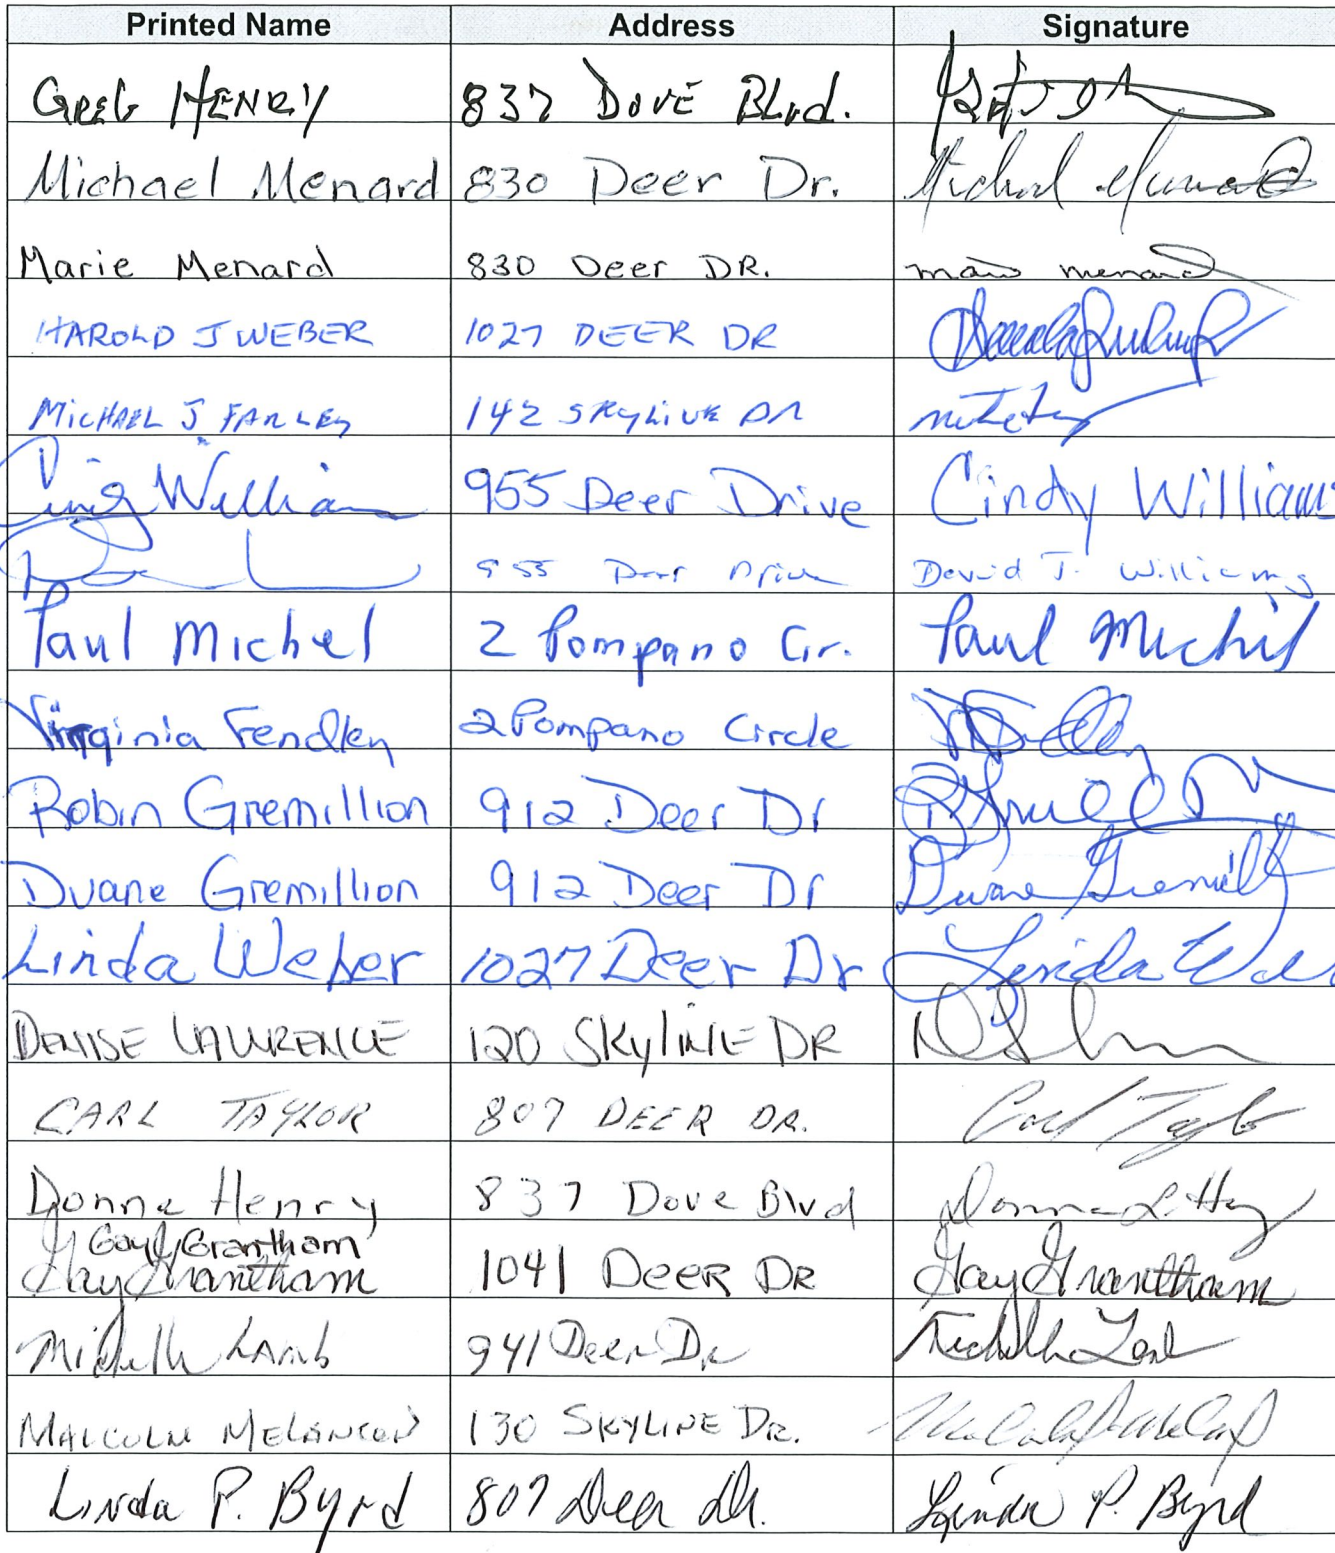 Printed Name Address Signature
GREG HENRY 837 DOVE BLvd.
Michael Menard 830 Deer Dr. Michael Menard
Marie Menard 830 Deer DR. marie menard
HAROLD J WEBER 1027 DEER DR
MICHAEL J FARLEY 142 SKYLINE DR
Cindy Williams 955 Deer Drive Cindy Williams
955 Deer Drive David J. Williams
Paul Michel 2 Pompano Cir. Paul Michel
Virginia Fendley 2 Pompano Circle
Robin Gremillion 912 Deer Dr
Duane Gremillion 912 Deer Dr Duane Gremillion
Linda Weber 1027 Deer Dr Linda
DENISE LAWRENCE 120 SKYLINE DR
CARL TAYLOR 807 DEER DR. Carl Taylor
Donna Henry 837 Dove Blvd Donna L. Henry
Gay Grantham
Gay Grantham 1041 DEER DR Gay Grantham
Michelle LAmb 941 Deer Dr Michelle Lamb
MALCOLM MELANCON 130 SKYLINE DR.
Linda P. Byrd 807 Deer Dr. Linda P. Byrd